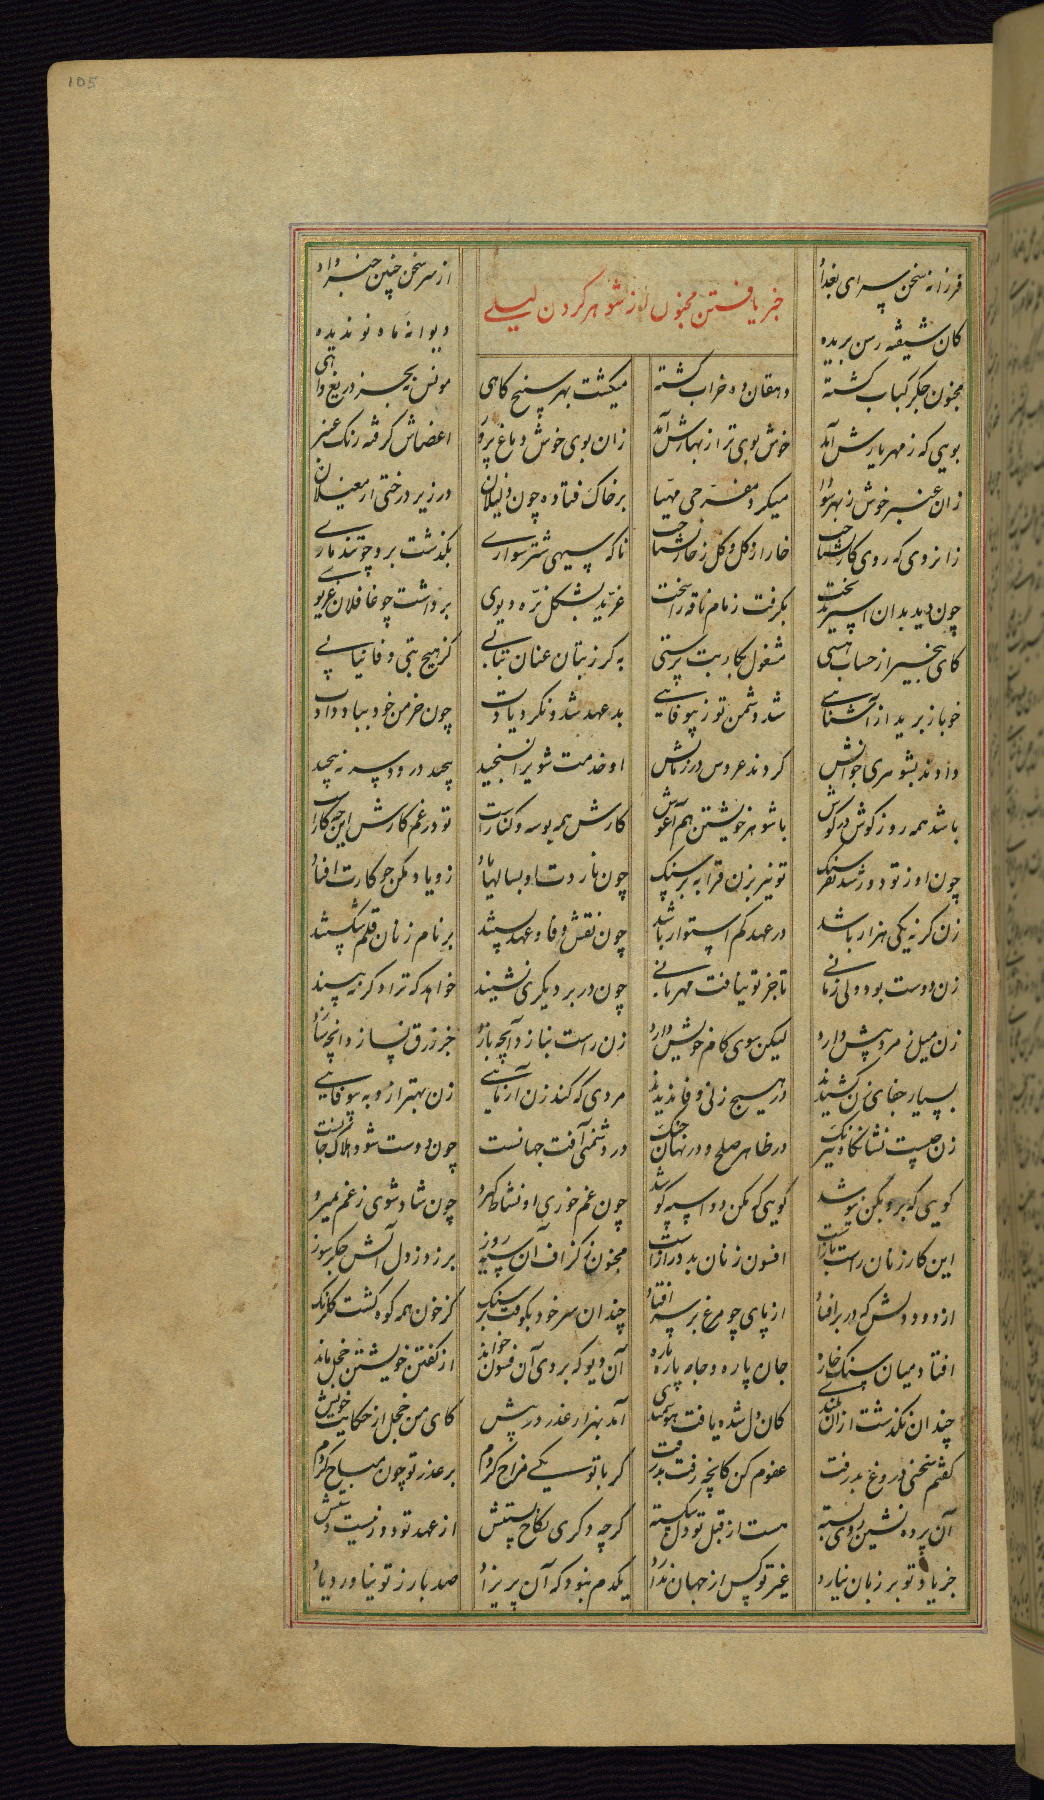 فرزانه سخن سرای بغداد از سر سخن چنین خبر داد
خبر یافتن مجنون از شوهر کردن لیلی
کان شیفته رسن بریده دیوانه ماه نو ندیده
مجنون جگر کباب گشته دهقان ده خراب گشته میگشت بهر بسیچ گاهی مونس نه بجز دریغ و آهی
بویی که ز مهر یارش آمد خوش بوی تر از بهارش آمد زان بوی خوش دماغ پرور اعضاش گرفته رنگ عنبر
زان عنبر خوش ز بهر سودا میکرد مفرحی مهیا بر خاک فتاده چون ذلیلان در زیر درختی از مغیلان
زانروی که روی کار نشناخت خار از گل و گل ز خار نشناخت ناگه سیهی شتر سواری بگذشت برو چو تند ماری
چون دید بدان اسیر بی رخت بگرفت زمام ناقه را سخت غرید بشکل نره دیوی برداشت چو غافلان غریوی
کای بیخبر از حساب هستی مشغول بکار بت پرستی به گر ز بتان عنان بتابی کز هیچ بتی وفا نیابی
خو باز برید از آشنایی شد دشمن تو ز بیوفایی بد عهد شد و نکرد یادت چون خرمن خود بباد دادت
دادند بشوهری جوانش کردند عروس در زمانش او خدمت شوی را بسنجید پیچید درو و سر نه پیچید
باشد همه روز گوش در گوش با شوهر خویشتن هم آغوش کارش همه بوسه و کنارست تو در غم کارش این چه کارست
چون او ز تو دور شد بفرسنگ تو نیز بزن قرابه بر سنگ چون ناردت او بسالها یاد زو یاد مکن چو کارت افتاد
زن گر نه یکی هزار باشد در عهد کم استوار باشد چون نقش وفا و عهد بستند بر نام زنان قلم شکستند
زن دوست بود ولی زمانی تا جز تو نیافت مهربانی چون در بر دیگری نشیند خواهد که ترا دگر نبیند
زن میل ز مرد بیش دارد لیکن سوی کام خویش دارد زن راست نبازد آنچه بازد جز زرق نسازد آنچه سازد
بسیار جفای زن کشیدند در هیچ زنی وفا ندیدند مردی که کند زن آزمایی زن بهتر ازو به بیوفایی
زن چیست نشانگاه نیرنگ در ظاهر صلح و در نهان جنگ در دشمنی آفت جهانست چون دوست شود هلاک جانست
گویی که برو بکن نیوشد گویی که مکن دو اسپه کوشد چون غم خوری او نشاط گیرد چون شاد شوی ز غم بمیرد
این کار زنان راست بازست افسون زنان بد درازست مجنون ز گزاف آن سیه روز بر زد ز دل آتش جگر سوز
از دود دلش که در بر افتاد از پای چو مرغ بر سر افتاد چندان سر خود بکوفت بر سنگ کز خون همه کوه گشت گلرنگ
افتاد میان سنگ خاره جان پاره و جامه پاره پاره آن دیو که بر وی آن فسون خواند از گفتن خویشتن خجل ماند
چندان نگذشت از آن بلندی کان دل شده یافت هوشمندی آمد بهزار عذر در پیش کای من خجل از حکایت خویش
گفتم سخنی دروغ بد رفت عفوم کن کانچه رفت بد رفت گر با تو یکی مزاح کردم بر عذر تو چون مباح کردم
آن پرده نشین روی بسته هست از قبل تو دل شکسته گرچه دگری نکاح بستش از عهد تو دور نیست دستش
جز یاد تو بر زبان نیارد غیر تو کس از جهان ندارد یکدم نبود که آن پریزاد صد بار ز تو نیاورد یاد
105